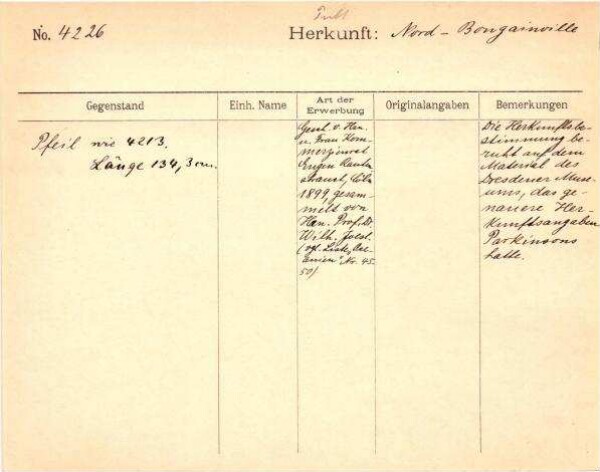 No. 4226
Herkunft: Nord - Bougainville
Gegenstand
Einh. Name
Art der Erwerbung
Originalangaben
Bemerkungen
Pfeil wie 4213.
Länge 134,3 cm.
Gesch. v. Hrn.
u. Frau Kom-
merzienrat
Eugen Rauten-
strauch, Cöln
1899, gesam-
melt von
Hrn. Prof. Dr.
Wilh. Joest.
(vgl. Liste "Oze-
anien" Nr. 45
50)
Die Herkunftsbe-
stimmung be-
ruht auf dem
Material des
Dresdener Muse-
ums, das ge-
nauere Her-
kunftsangaben
Parkinsons
hatte.